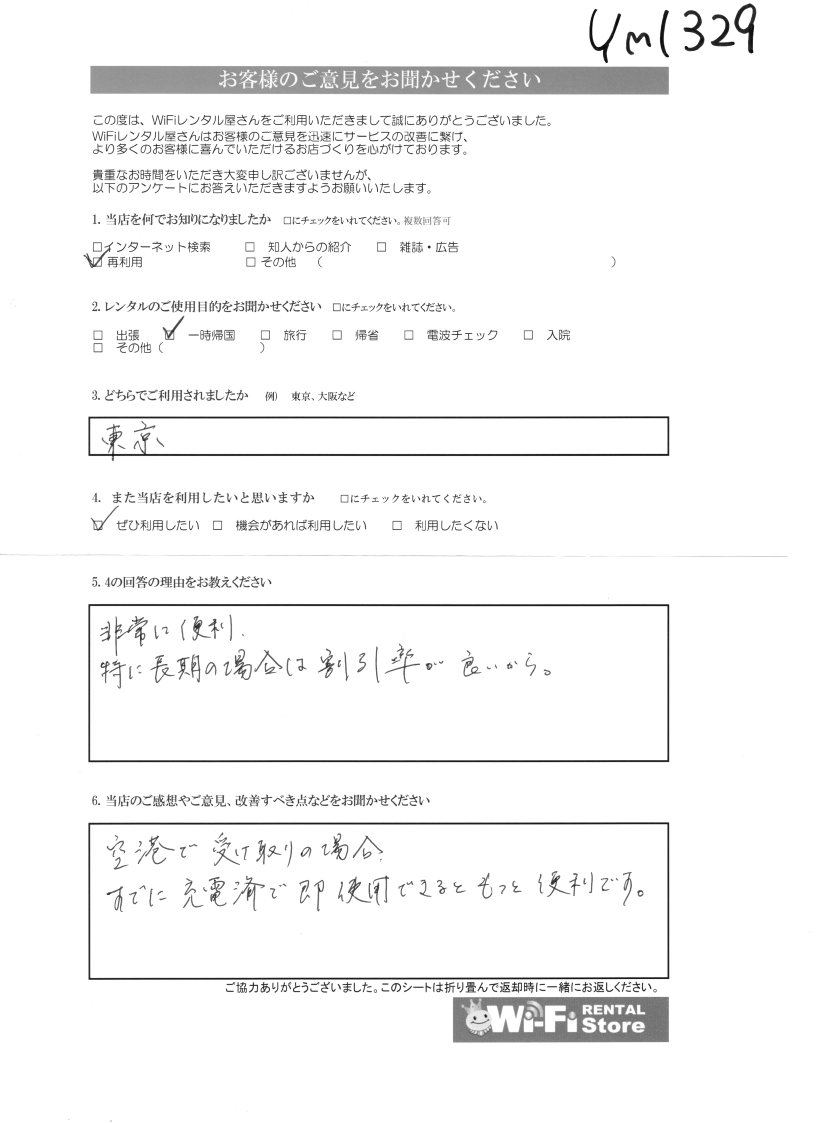 Ym1329
お客様のご意見をお聞かせください
この度は、WiFiレンタル屋さんをご利用いただきまして誠にありがとうございました。
WiFiレンタル屋さんはお客様のご意見を迅速にサービスの改善に繋げ、
より多くのお客様に喜んでいただけるお店づくりを心がけております。
貴重なお時間をいただき大変申し訳ございませんが、
以下のアンケートにお答えいただきますようお願いいたします。
1. 当店を何でお知りになりましたか □にチェックをいれてください。複数回答可
□インターネット検索 □ 知人からの紹介 □ 雑誌・広告
☑ 再利用 □ その他 ( )
2. レンタルのご使用目的をお聞かせください □にチェックをいれてください。
□ 出張 ☑ 一時帰国 □ 旅行 □ 帰省 □ 電波チェック □ 入院
□ その他 ( )
3. どちらでご利用されましたか 例) 東京、大阪など
東京
4. また当店を利用したいと思いますか □にチェックをいれてください。
☑ ぜひ利用したい □ 機会があれば利用したい □ 利用したくない
5. 4の回答の理由をお教えください
非常に便利、
特に長期の場合は割引率が良いから。
6. 当店のご感想やご意見、改善すべき点などをお聞かせください
空港で受け取りの場合、
すでに充電済で即使用できるともっと便利です。
ご協力ありがとうございました。このシートは折り畳んで返却時に一緒にお返しください。
Wi-Fi RENTAL Store